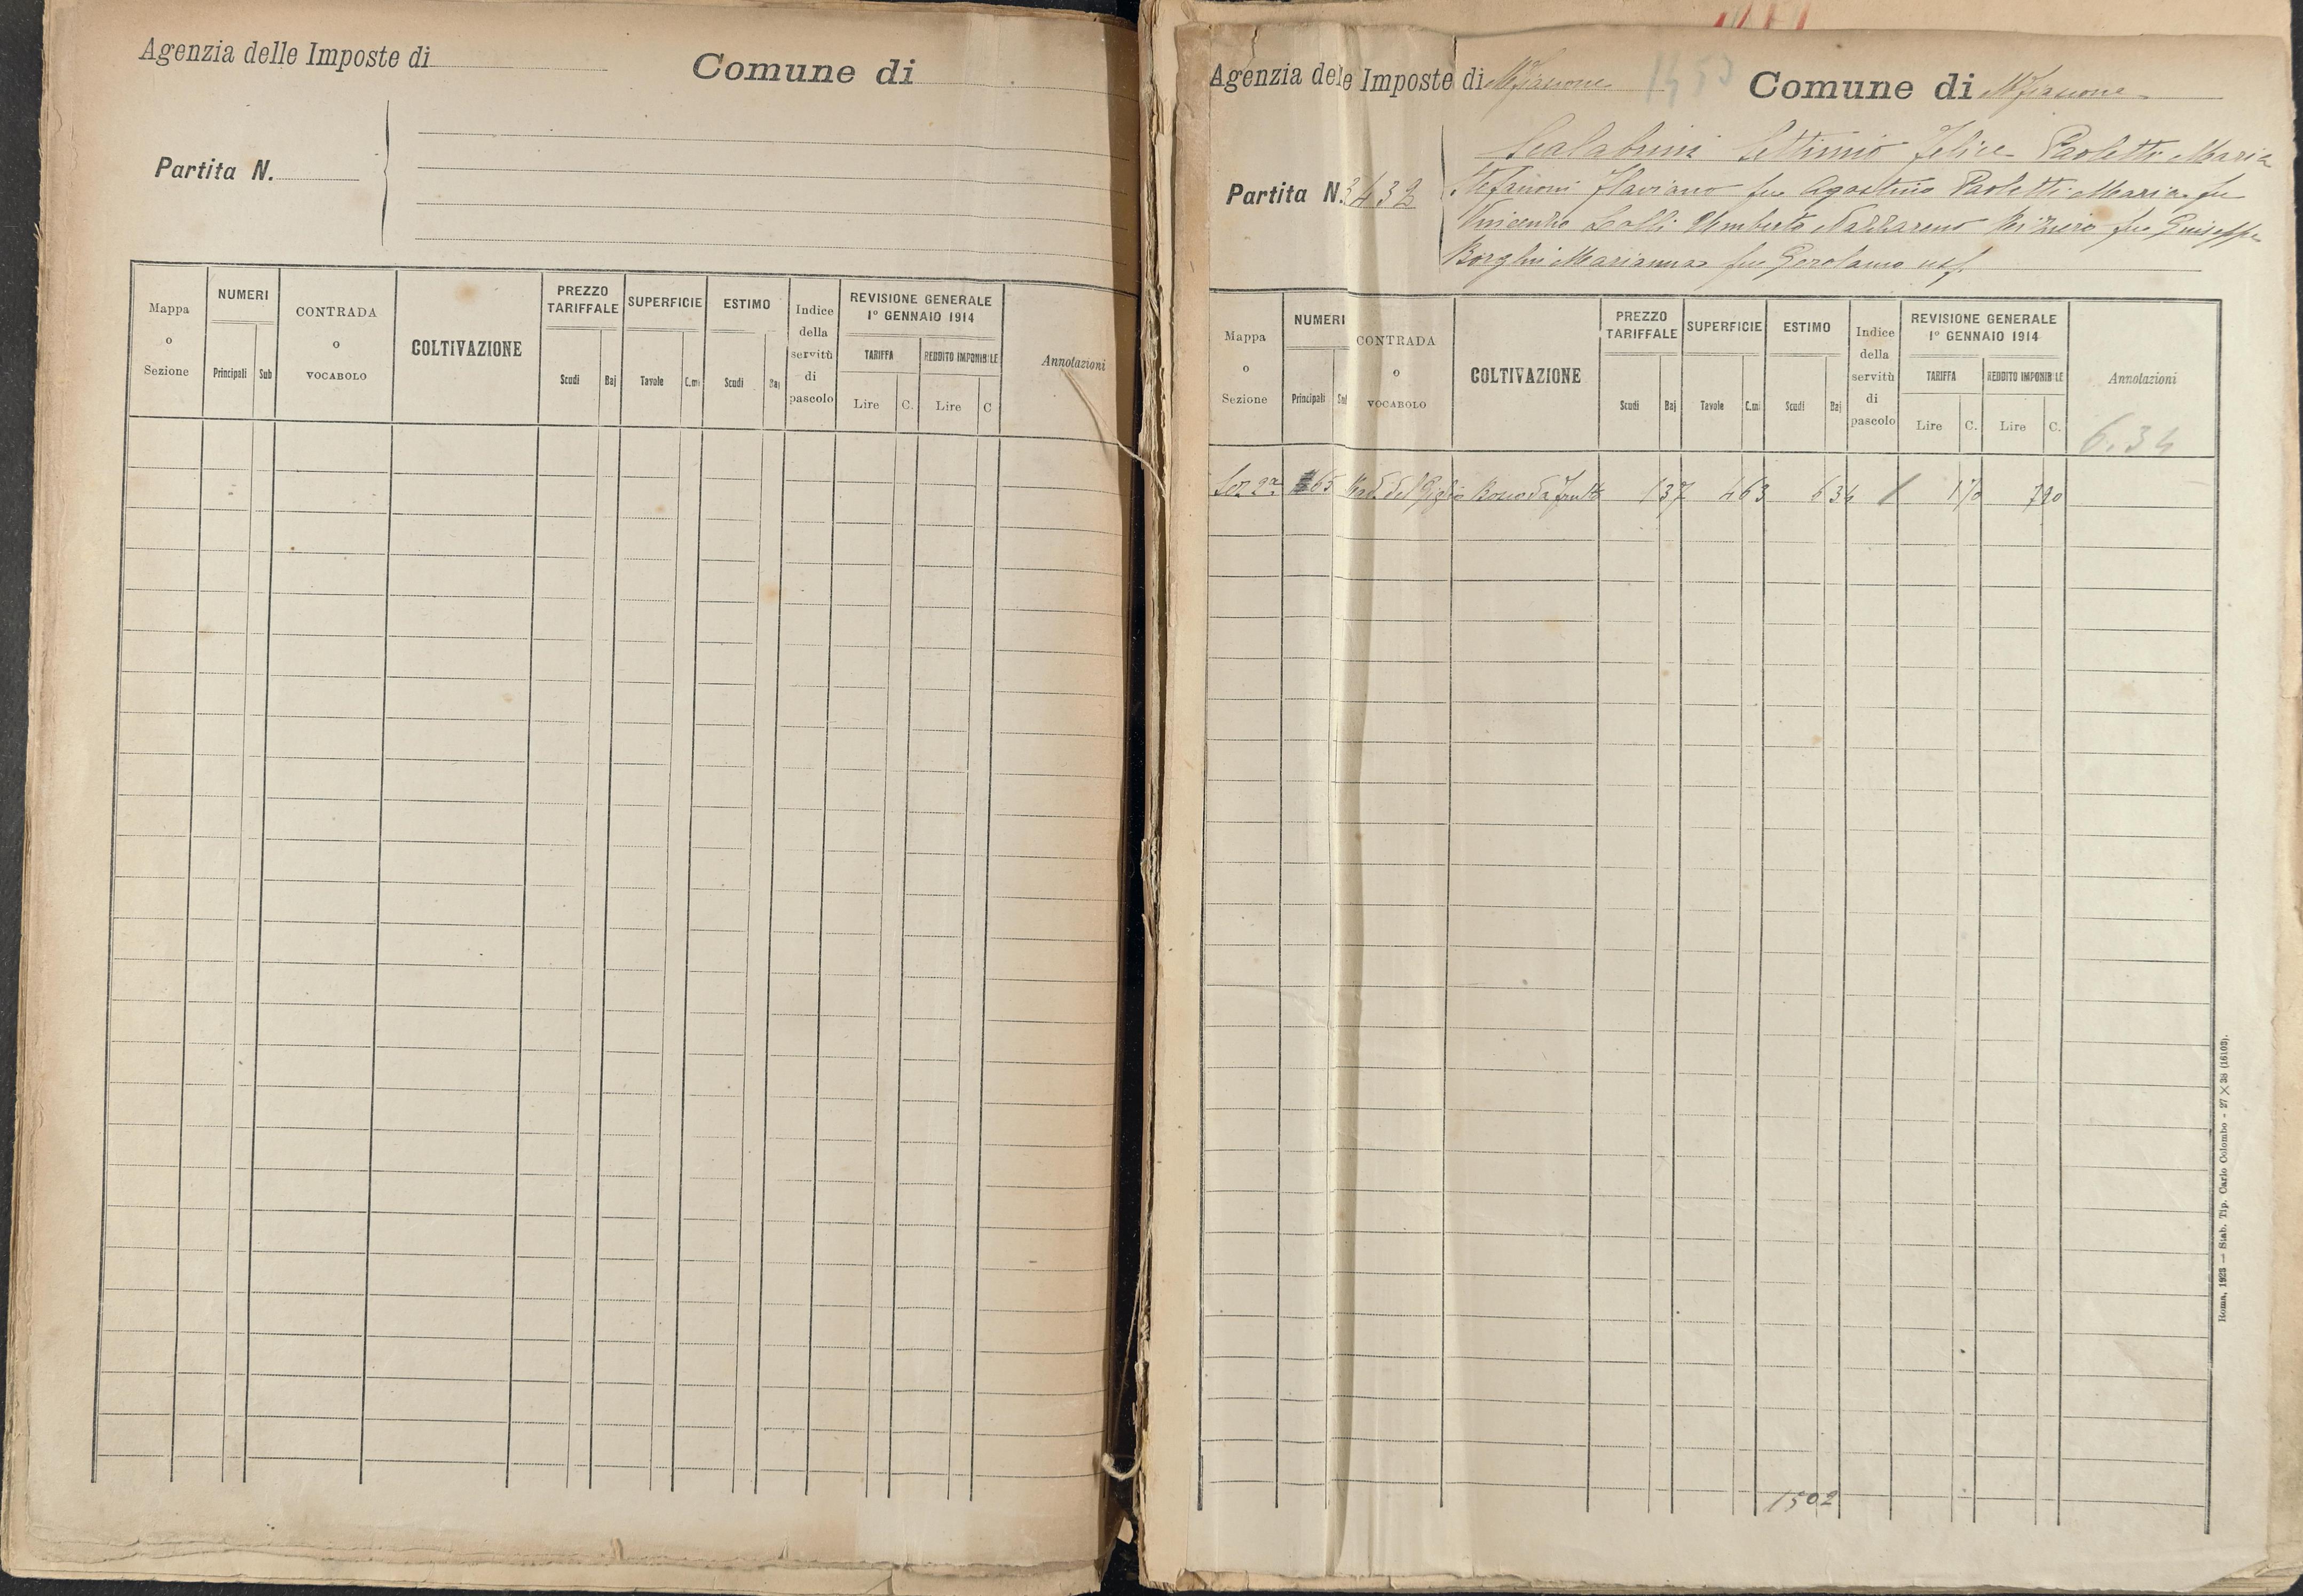 Agenzia delle Imposte di
Comune di
Partita N.
Mappa o Sezione
NUMERI
Principali Sub
CONTRADA o VOCABOLO
COLTIVAZIONE
PREZZO TARIFFALE
Scudi Baj
SUPERFICIE
Tavole C.mi
ESTIMO
Scudi Baj
Indice della servitù di pascolo
REVISIONE GENERALE
1º GENNAIO 1914
TARIFFA REDDITO IMPONIBILE
Lire C. Lire C
Annotazioni
Agenzia delle Imposte di Mfiascone
Comune di Mfiascone
Partita N. 3432
Scalabrini Settimio Felice Paoletti Maria
Stefanoni Flaviano fu Agostino Paoletti Maria fu
Vincenzo Lolli Umberto Nazzareno fu Giuseppe
Borghi Marianna fu Gerolamo usf.
Mappa o Sezione
NUMERI
Principali Sub
CONTRADA o VOCABOLO
COLTIVAZIONE
PREZZO TARIFFALE
Scudi Baj
SUPERFICIE
Tavole C.mi
ESTIMO
Scudi Baj
Indice della servitù di pascolo
REVISIONE GENERALE
1º GENNAIO 1914
TARIFFA REDDITO IMPONIBILE
Lire C. Lire C.
Annotazioni
6.34
Sez 2ª 65 del Giglio Bosco da frutto 137 463 634 / 170 790
1502
Roma, 1923 — Stab. Tip. Carlo Colombo - 27 X 38 (16103).